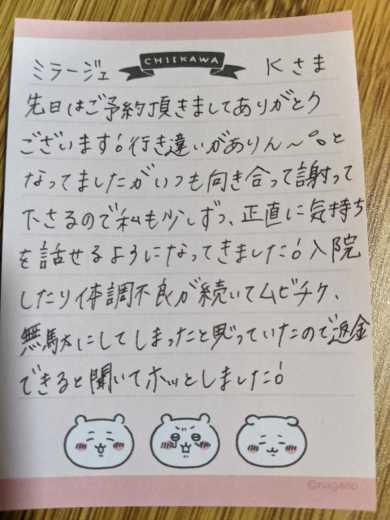 ミラージュ CHIIKAWA Kさま
先日はご予約頂きましてありがとう
ございます!行き違いがありん〜°。と
なってましたがいつも向き合って謝って
下さるので私も少しずつ、正直に気持ち
を話せるようになってきました!入院
したり体調不良が続いてムビチケ、
無駄にしてしまったと思っていたので返金
できると聞いてホッとしました!
©nagano